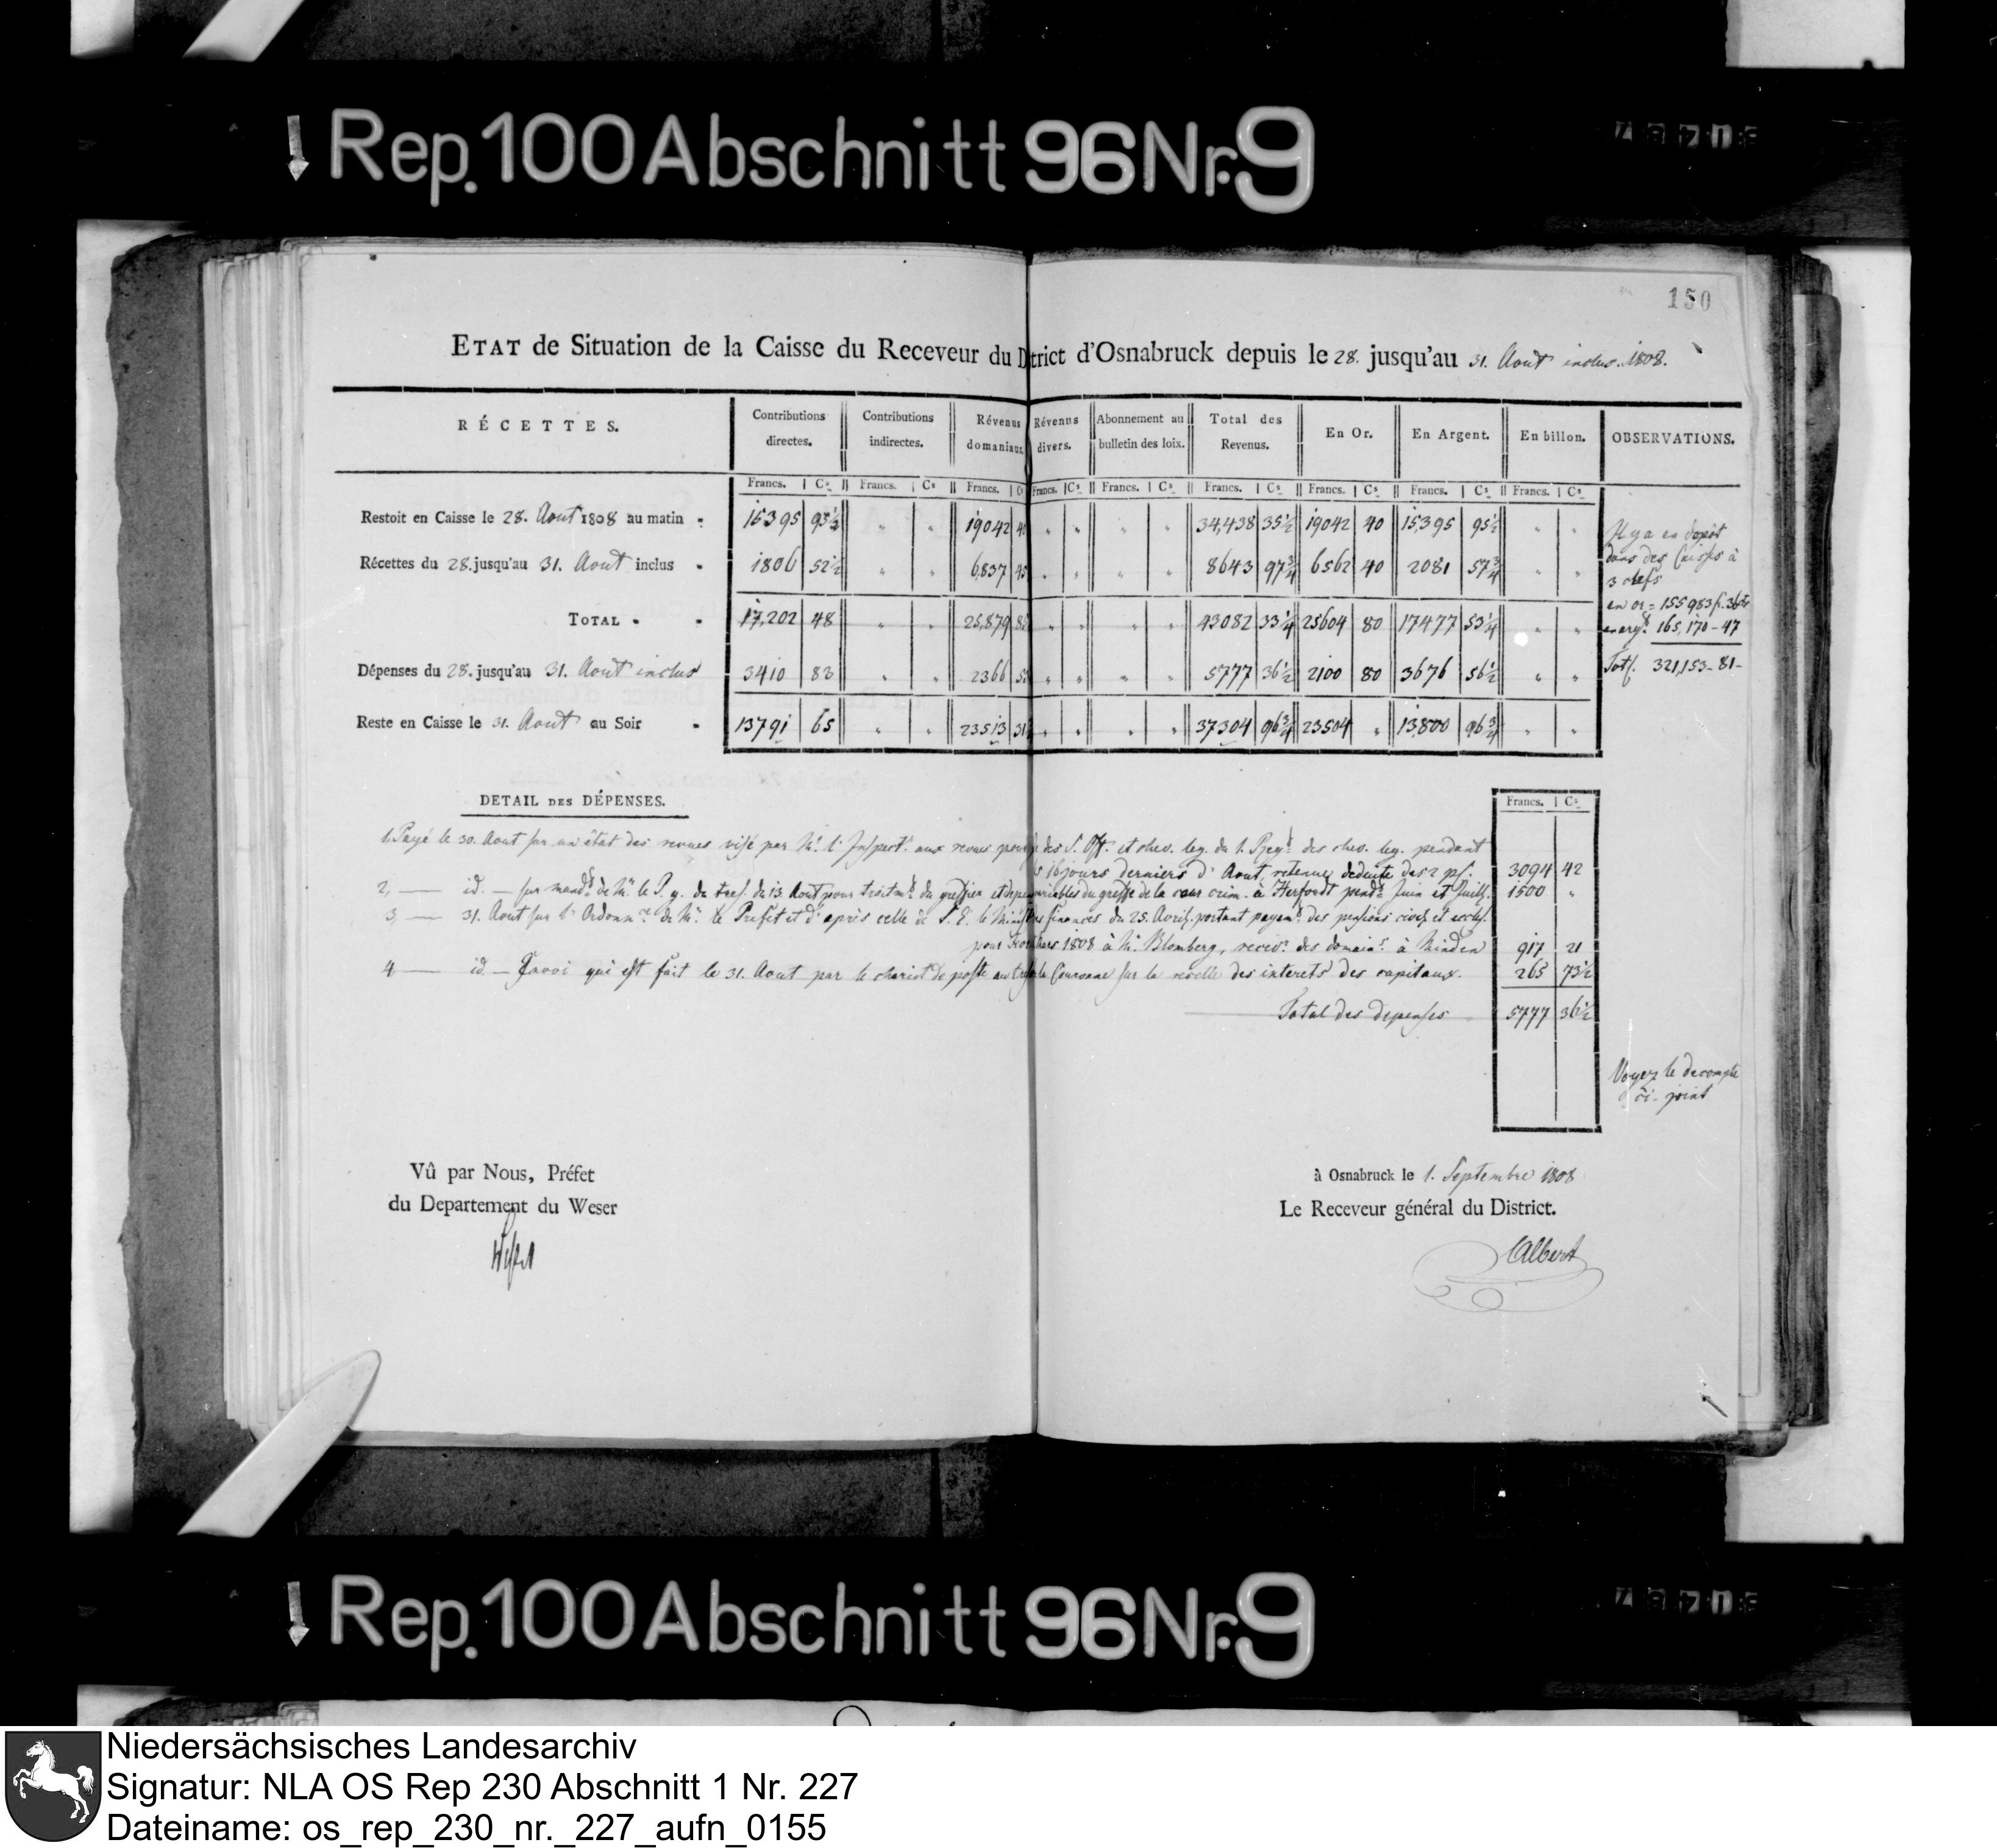 Rep. 100 Abschnitt 96 Nr. 9
150
ETAT de Situation de la Caisse du Receveur du D trict d'Osnabruck depuis le 28. jusqu'au 31. Aout inclus. 1808.
RÉCETTES. Contributions directes. Contributions indirectes. Révenus domaniaux Révenus divers. Abonnement au bulletin des loix. Total des Revenus. En Or. En Argent. En billon. OBSERVATIONS.
Francs. Cs Francs. Cs Francs. Cs Francs. Cs Francs. Cs Francs. Cs Francs. Cs Francs. Cs Francs. Cs
Restoit en Caisse le 28. Aout 1808 au matin 15395 95½ " " 19042 40 " " " " 34,438 35½ 19042 40 15,395 95½ " "
Récettes du 28. jusqu'au 31. Aout inclus 1806 52½ " " 6,837 45 " " " " 8643 97¾ 6562 40 2081 57¾ " "
TOTAL 17,202 48 " " 25,879 85 " " " " 43082 33¼ 25604 80 17477 53¼ " "
Dépenses du 28. jusqu'au 31. Aout inclus 3410 83 " " 2366 " " " " 5777 36½ 2100 80 3676 56½ " "
Reste en Caisse le 31. Aout au Soir 13791 65 " " 23513 31 " " " " 37304 96¾ 23504 " 13,800 96¾ " "
Il y a en depôt
dans des Caisses à
3 clefs
en or = 155983 f. 36
en arg. 165,170 - 47
Tot. 321,153 - 81 -
DETAIL DES DÉPENSES.
Francs. Cs
1. Payé le 30. Aout sur un état des revues visé par Mr. l'Inspect. aux revues pour des S. Off. et chev. leg. du 1. Reg. des chev. leg. pendant
16 jours derniers d'Aout, retenue deduite des 2 p. 3094 42
2, — id. — sur mand. de Mr. le P. g. du tres. du 13 Aout pour traitm. du greffier et depen variables du greffe de la cour crim. à Herfordt pend. Juin et Juill. 1500 "
3, — 31. Aout sur l'Ordonnce de Mr. le Prefet et d'après celle de S. E. le Minist des finances du 25. Avril portant payem. des pensions civil. et eccles.
pour 1808 à Mr. Blomberg, recevr. des domain. à Minden 917 21
4 — id. — Envoi qui est fait le 31. Aout par le chariot de poste au tres la Couronne sur la recette des interets des capitaux. 265 73½
Total des depenses 5777 36½
Voyez le decompte
ci-joint
Vû par Nous, Préfet
du Departement du Weser
à Osnabruck le 1. Septembre 1808
Le Receveur général du District.
Albert
Rep. 100 Abschnitt 96 Nr. 9
Niedersächsisches Landesarchiv
Signatur: NLA OS Rep 230 Abschnitt 1 Nr. 227
Dateiname: os_rep_230_nr._227_aufn_0155